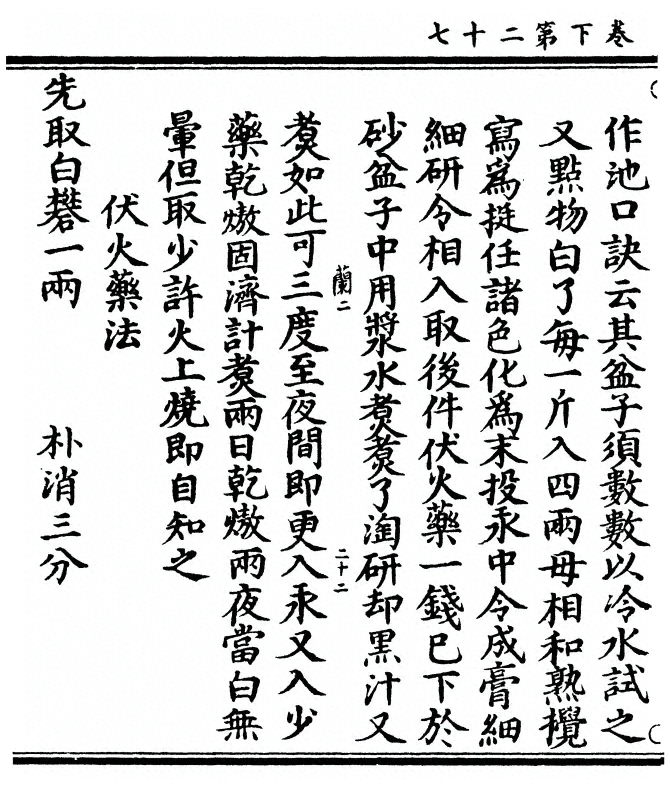 卷下第二十七
作池口訣云其盆子須數數以冷水試之
又點物白了每一斤入四兩母相和熟攪
寫爲挺任諸色化爲末投汞中令成膏細
細研令相入取後件伏火藥一錢已下於
砂盆子中用漿水煑煑了淘研却黑汁又
蘭二
二十二
煑如此可三度至夜間即更入汞又入少
藥乾熬固濟計煑兩日乾熬兩夜當白無
暈但取少許火上燒即自知之
伏火藥法
先取白礬一兩 朴消三分